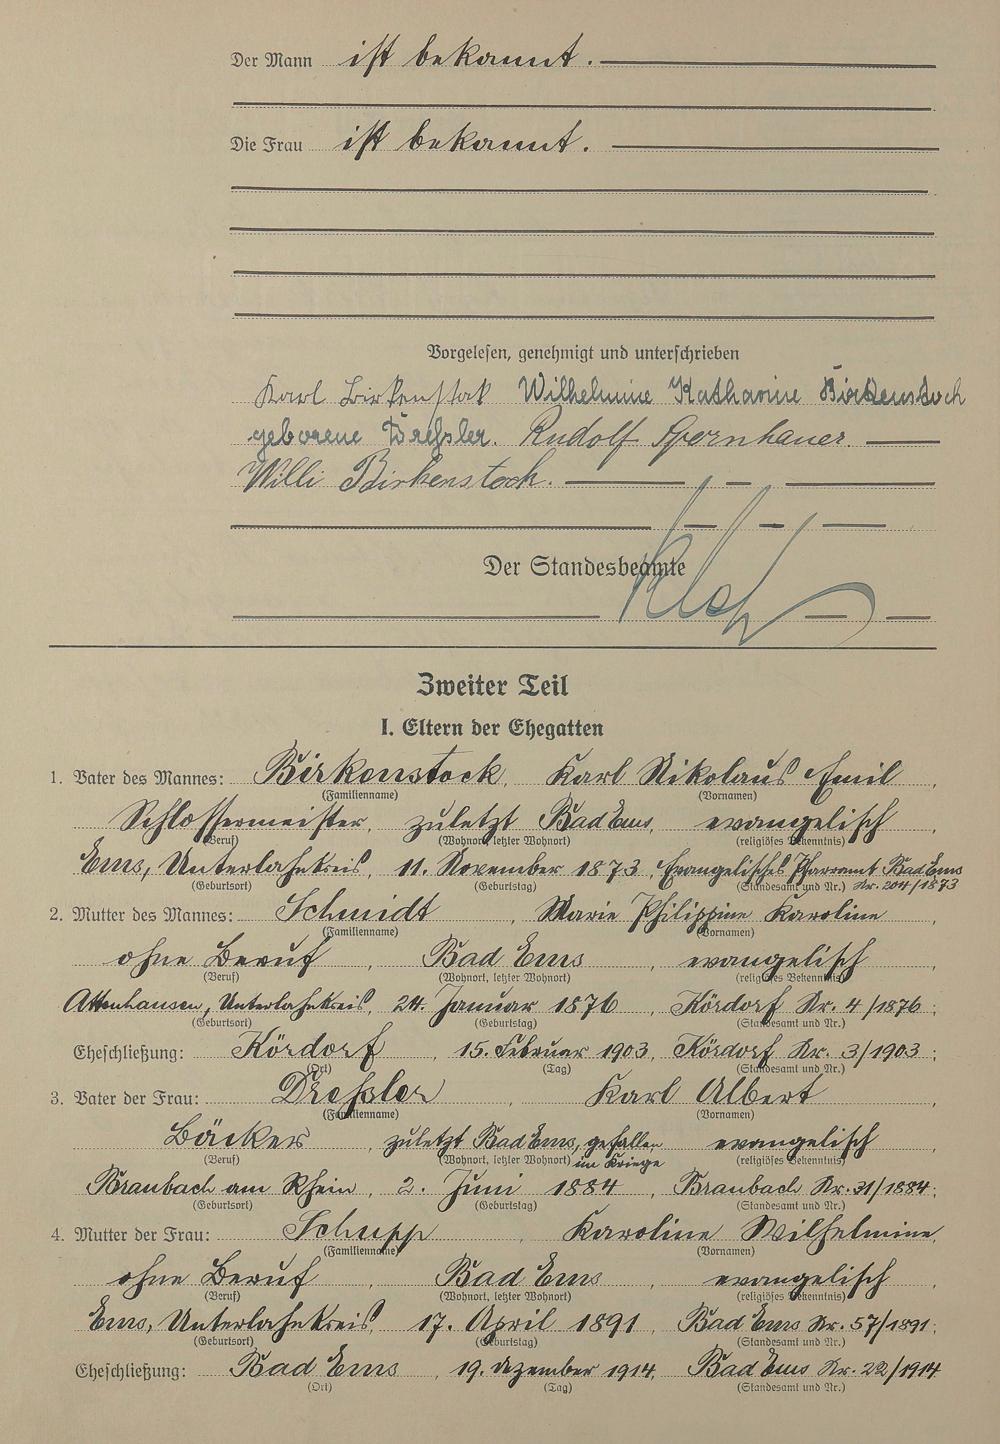 Der Mann ist bekannt.
Die Frau ist bekannt.
Vorgelesen, genehmigt und unterschrieben
Karl Birkenstock Wilhelmine Katharine Birkenstock
geborene Dreßler. Rudolf Spornhauer.
Willi Birkenstock.
Der Standesbeamte
Zweiter Teil
I. Eltern der Ehegatten
1. Vater des Mannes: Birkenstock, Karl Nikolaus Emil,
(Familienname) (Vornamen)
Schlossermeister, zuletzt Bad Ems, evangelisch,
(Beruf) (Wohnort, letzter Wohnort) (religiöses Bekenntnis)
Ems, Unterlahnkreis, 11. November 1873, Evangelisches Pfarramt Bad Ems
(Geburtsort) (Geburtstag) (Standesamt und Nr.) Nr. 204/1873
2. Mutter des Mannes: Schmidt, Marie Philippine Karoline,
(Familienname) (Vornamen)
ohne Beruf, Bad Ems, evangelisch,
(Beruf) (Wohnort, letzter Wohnort) (religiöses Bekenntnis)
Attenhausen, Unterlahnkreis, 24. Januar 1876, Kördorf Nr. 4/1876;
(Geburtsort) (Geburtstag) (Standesamt und Nr.)
Eheschließung: Kördorf, 15. Februar 1903, Kördorf Nr. 3/1903;
(Ort) (Tag) (Standesamt und Nr.)
3. Vater der Frau: Dreßler, Karl Albert,
(Familienname) (Vornamen)
Bäcker, zuletzt Bad Ems, gefallen evangelisch,
(Beruf) (Wohnort, letzter Wohnort) im Kriege (religiöses Bekenntnis)
Braubach am Rhein, 2. Juni 1884, Braubach Nr. 31/1884;
(Geburtsort) (Geburtstag) (Standesamt und Nr.)
4. Mutter der Frau: Schupp, Karoline Wilhelmine,
(Familienname) (Vornamen)
ohne Beruf, Bad Ems, evangelisch,
(Beruf) (Wohnort, letzter Wohnort) (religiöses Bekenntnis)
Ems, Unterlahnkreis, 17. April 1891, Bad Ems Nr. 57/1891;
(Geburtsort) (Geburtstag) (Standesamt und Nr.)
Eheschließung: Bad Ems, 19. Dezember 1914, Bad Ems Nr. 22/1914
(Ort) (Tag) (Standesamt und Nr.)